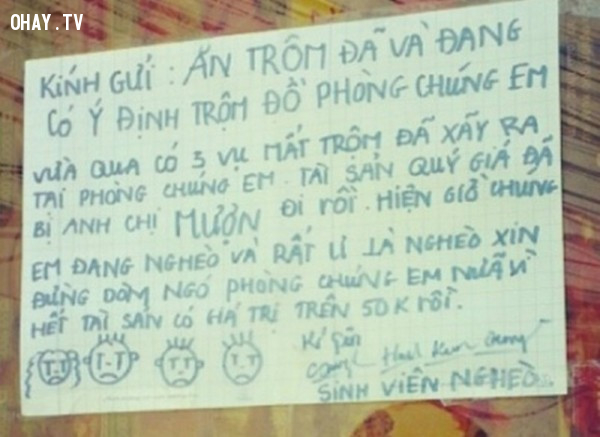 OHAY.TV
KÍNH GỬI : ĂN TRÔM ĐÃ VÀ ĐANG
CÓ Ý ĐỊNH TRỘM ĐỒ PHÒNG CHÚNG EM
VỪA QUA CÓ 3 VỤ MẤT TRỘM ĐÃ XÃY RA
TẠI PHÒNG CHÚNG EM. TÀI SẢN QUÝ GIÁ ĐÃ
BỊ ANH CHỊ MƯỢN ĐI RỒI. HIỆN GIỜ CHÚNG
EM ĐANG NGHÈO VÀ RẤT LÀ NGHÈO XIN
ĐỪNG DÒM NGÓ PHÒNG CHÚNG EM NỮA VÌ
HẾT TÀI SẢN CÓ GIÁ TRỊ TRÊN 50K RỒI.
Kí
SINH VIÊN NGHÈO...